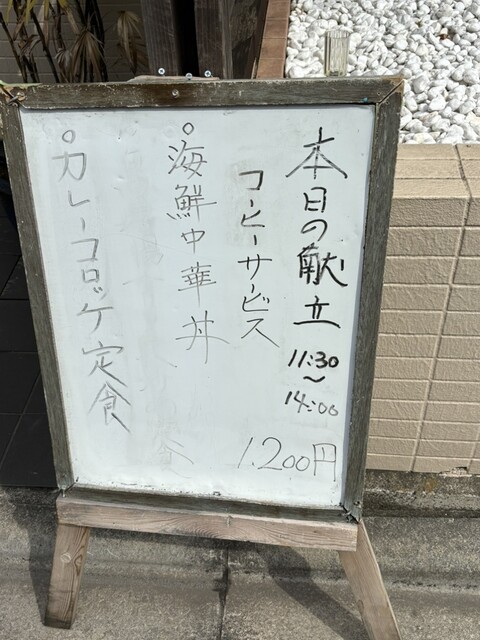 本日の献立
11:30
〜
14:00
コーヒーサービス
1.200円
○海鮮中華丼
○カレーコロッケ定食